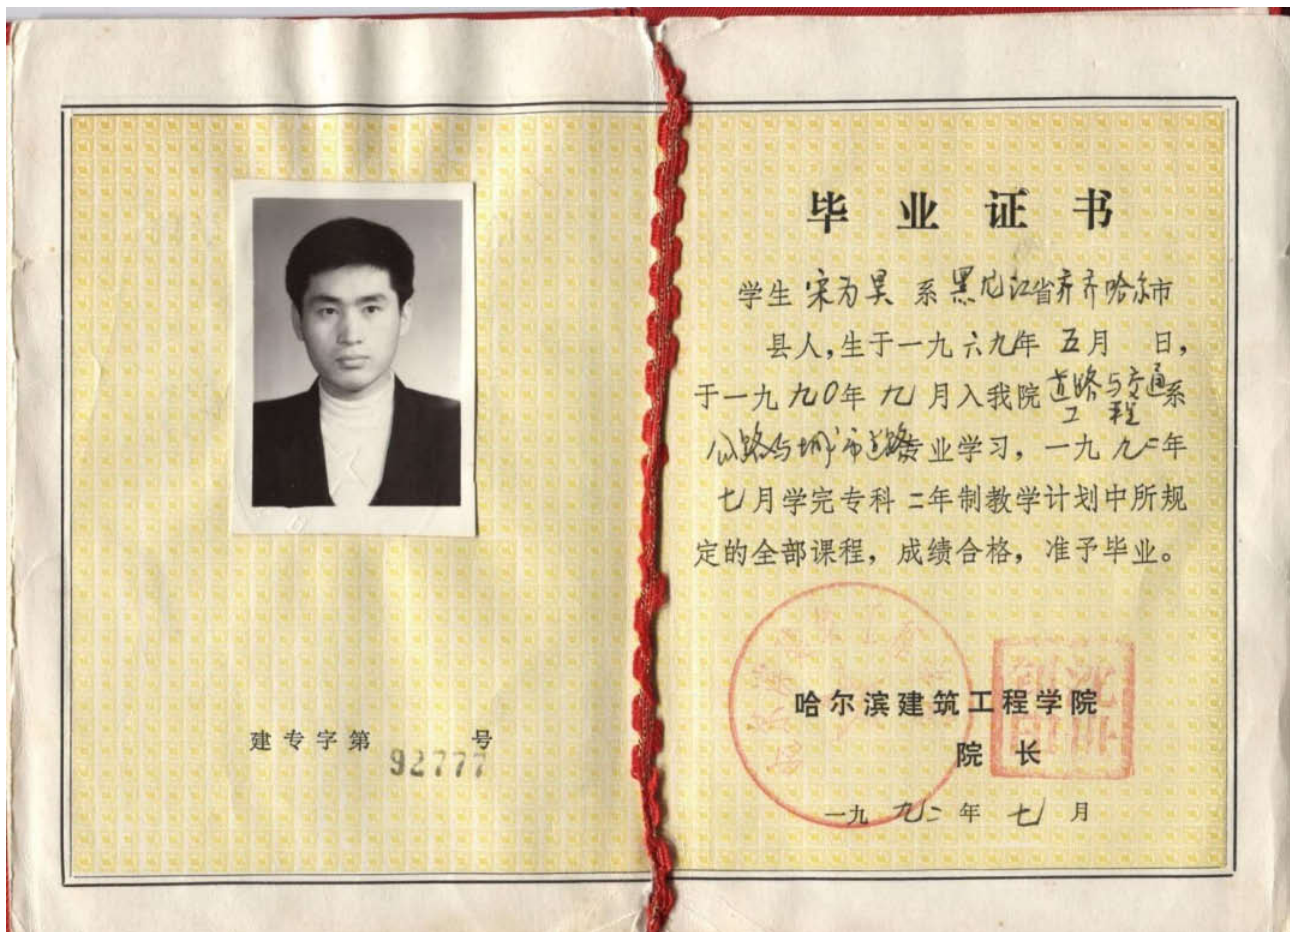 建专字第 92777 号
毕业证书
学生 宋为昊 系 黑龙江省齐齐哈尔市
县人,生于一九六九年 五月 日,
于一九九〇年 九月入我院 道路与交通工程系
公路与城市道路专业学习,一九九二年
七月学完专科 二年制教学计划中所规
定的全部课程,成绩合格,准予毕业。
哈尔滨建筑工程学院
院 长
一九九二年 七月